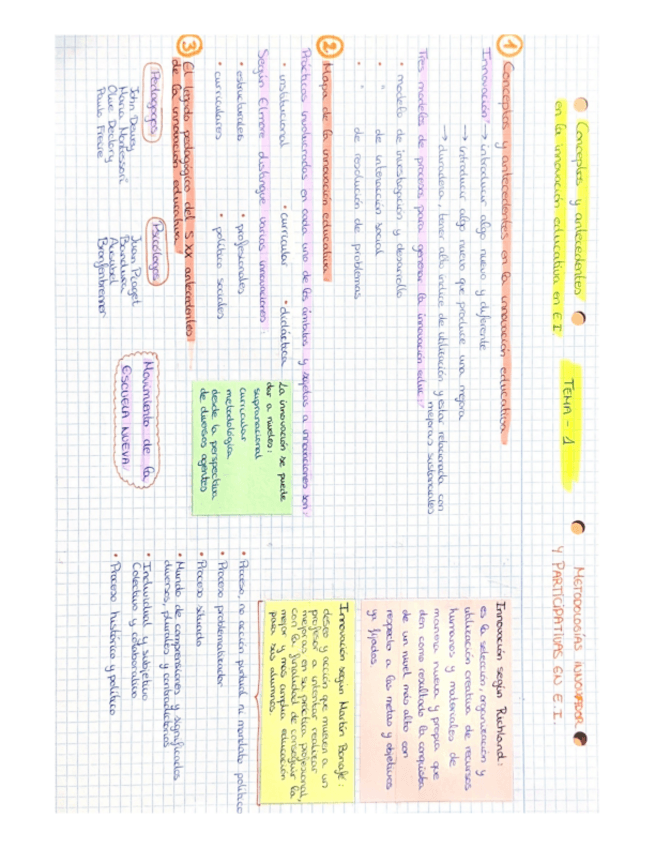 METODOLOGÍAS INNOVADOR
Y PARTICIPATIVAS EN E.I.
TEMA - 1
Conceptos y antecedentes
en la innovación educativa en E I
① Conceptos y antecedentes en la innovación educativa
Innovación → introducir algo nuevo y diferente
→ introducir algo nuevo que produce una mejora
→ duradera, tener alto indice de utilización y estar relacionada con
mejoras sustanciales
Tres modelos de procesos para generar la innovación educ:
• modelo de investigación y desarrollo
• " de interacción social
• " de resolución de problemas
② Mapa de la innovación educativa
Prácticas involucradas en cada uno de los ámbitos y sujetas a innovaciones son:
• institucional • curricular • didáctica
Según Elmore distingue varias innovaciones:
• estructurales • profesionales
• curriculares • político sociales
La innovación se puede
dar a niveles:
supranacional
curricular
metodológica
desde la perspectiva
de diversos agentes
③ El legado pedagógico del S XX antecedentes
de la innovación educativa
Pedagogos
John Dewey
Maria Montessori
Olive Declory
Paulo Freire
Psicólogos
Juan Piaget
Bandura
Ausubel
Bronfenbrenner
Movimiento de la
ESCUELA NUEVA
Innovación según Richland:
es la selección, organización y
utilización creativa de recursos
humanos y materiales de
manera nueva y propia que
den como resultado la conquista
de un nivel más alto con
respecto a las metas y objetivos
ya fijados
Innovación según Martín Bonafé:
deseo y acción que mueven a un
profesor a intentar realizar
mejoras en su práctica profesional,
con la finalidad de conseguir la
mejor y más amplia educación
para sus alumnos.
• Proceso, no acción puntual ni mandato político
• Proceso problematizador
• Proceso situado
• Mundo de comprensiones y significados
diversos, plurales y contradictorios
• Individual y subjetivo
Colectivo y colaborativo
• Proceso histórico y político